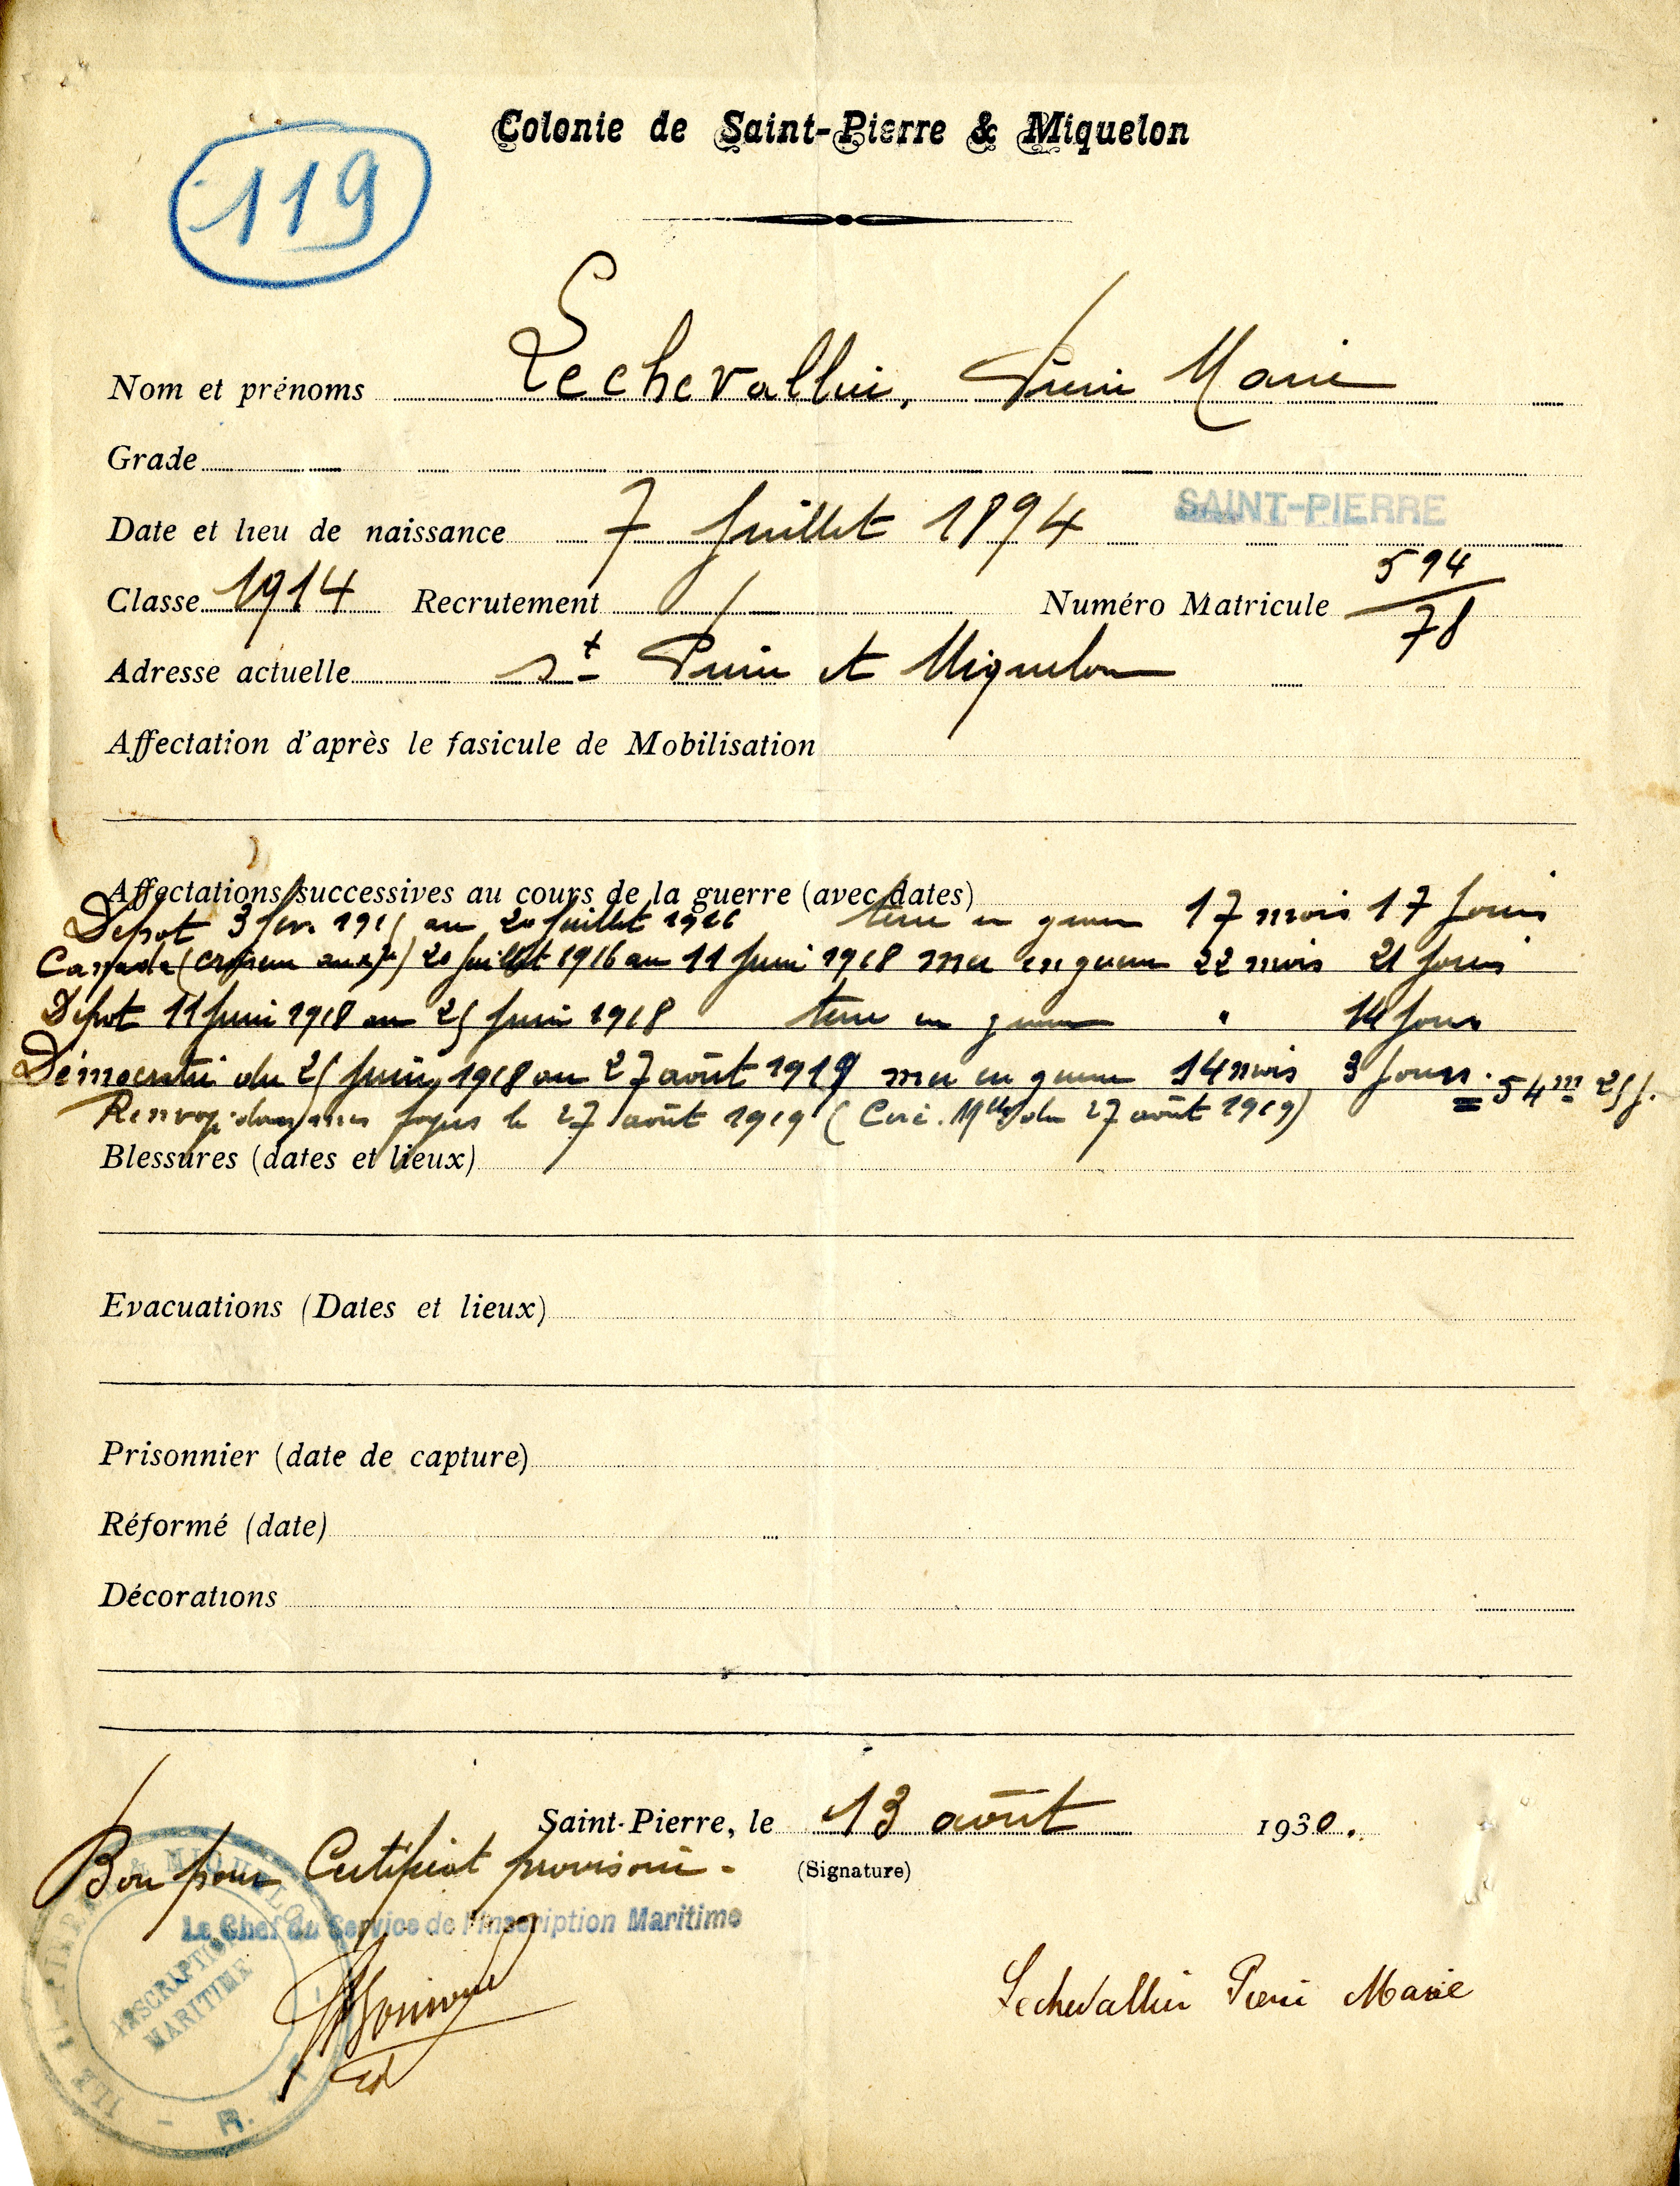 Colonie de Saint-Pierre & Miquelon
119
Nom et prénoms Lechevallier, Pierre Marie
Grade
Date et lieu de naissance 7 Juillet 1894 SAINT-PIERRE
Classe 1914 Recrutement Numéro Matricule 594/78
Adresse actuelle St Pierre et Miquelon
Affectation d'après le fasicule de Mobilisation
Affectations successives au cours de la guerre (avec dates)
Dépot 3 fév. 1915 au 20 Juillet 1916 terre en guerre 17 mois 17 Jours
(croiseur auxre) 20 Juillet 1916 au 11 Juin 1918 mer en guerre 22 mois 21 Jours
Dépot 11 Juin 1918 au 25 Juin 1918 terre en guerre " 14 Jours
Démocratie du 25 Juin 1918 au 27 août 1919 mer en guerre 14 mois 3 Jours. = 54m 25 J.
Renvoyé dans ses foyers le 27 août 1919 (Circ. Mlle du 27 août 1919)
Blessures (dates et lieux)
Evacuations (Dates et lieux)
Prisonnier (date de capture)
Réformé (date)
Décorations
Saint-Pierre, le 13 août 1930.
(Signature)
Bon pour Certificat provisoire -
Le Chef du Service de l'Inscription Maritime
INSCRIPTION
MARITIME
Lechevallier Pierre Marie